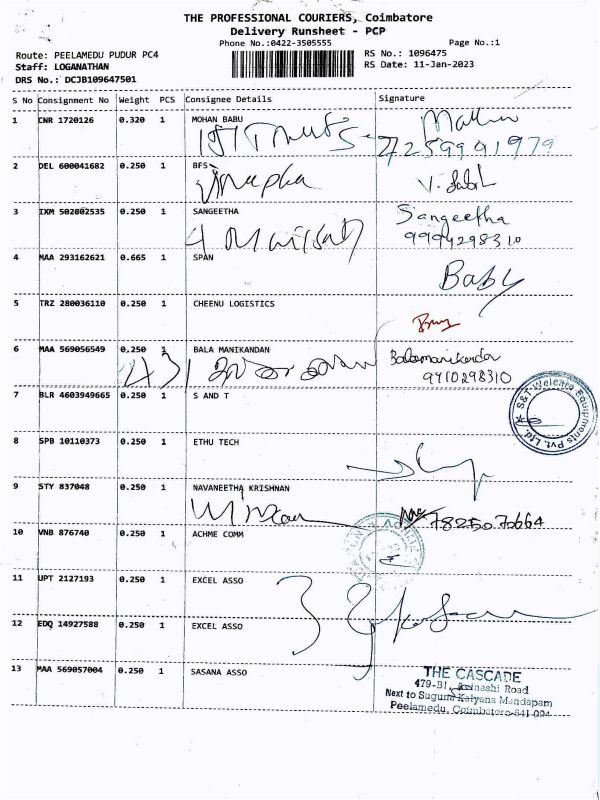 THE PROFESSIONAL COURIERS, Coimbatore
Delivery Runsheet - PCP
Phone No.:0422-3505555 Page No.:1
Route: PEELAMEDU PUDUR PC4 RS No.: 1096475
Staff: LOGANATHAN RS Date: 11-Jan-2023
DRS No.: DCJB109647501
S No Consignment No Weight PCS Consignee Details Signature
1 CNR 1720126 0.320 1 MOHAN BABU
7259991979
2 DEL 600041682 0.250 1 BFS
3 IXM 502802535 0.250 1 SANGEETHA Sangeetha
9994298310
4 MAA 293162621 0.665 1 SPAN
Baby
5 TRZ 280036110 0.250 1 CHEENU LOGISTICS
6 MAA 569056549 0.250 1 BALA MANIKANDAN Balamanikandan
9910298310
7 BLR 4603949665 0.250 1 S AND T
S&T Welcare Equipments Pvt. Ltd.
8 SPB 10110373 0.250 1 ETHU TECH
9 STY 837048 0.250 1 NAVANEETHA KRISHNAN
7825070664
10 VNB 876740 0.250 1 ACHME COMM
11 UPT 2127193 0.250 1 EXCEL ASSO
12 EDQ 14927588 0.250 1 EXCEL ASSO
13 MAA 569057004 0.250 1 SASANA ASSO
THE CASCADE
479-B1, Avinashi Road
Next to Suguna Kalyana Mandapam
Peelamedu, Coimbatore-641 004